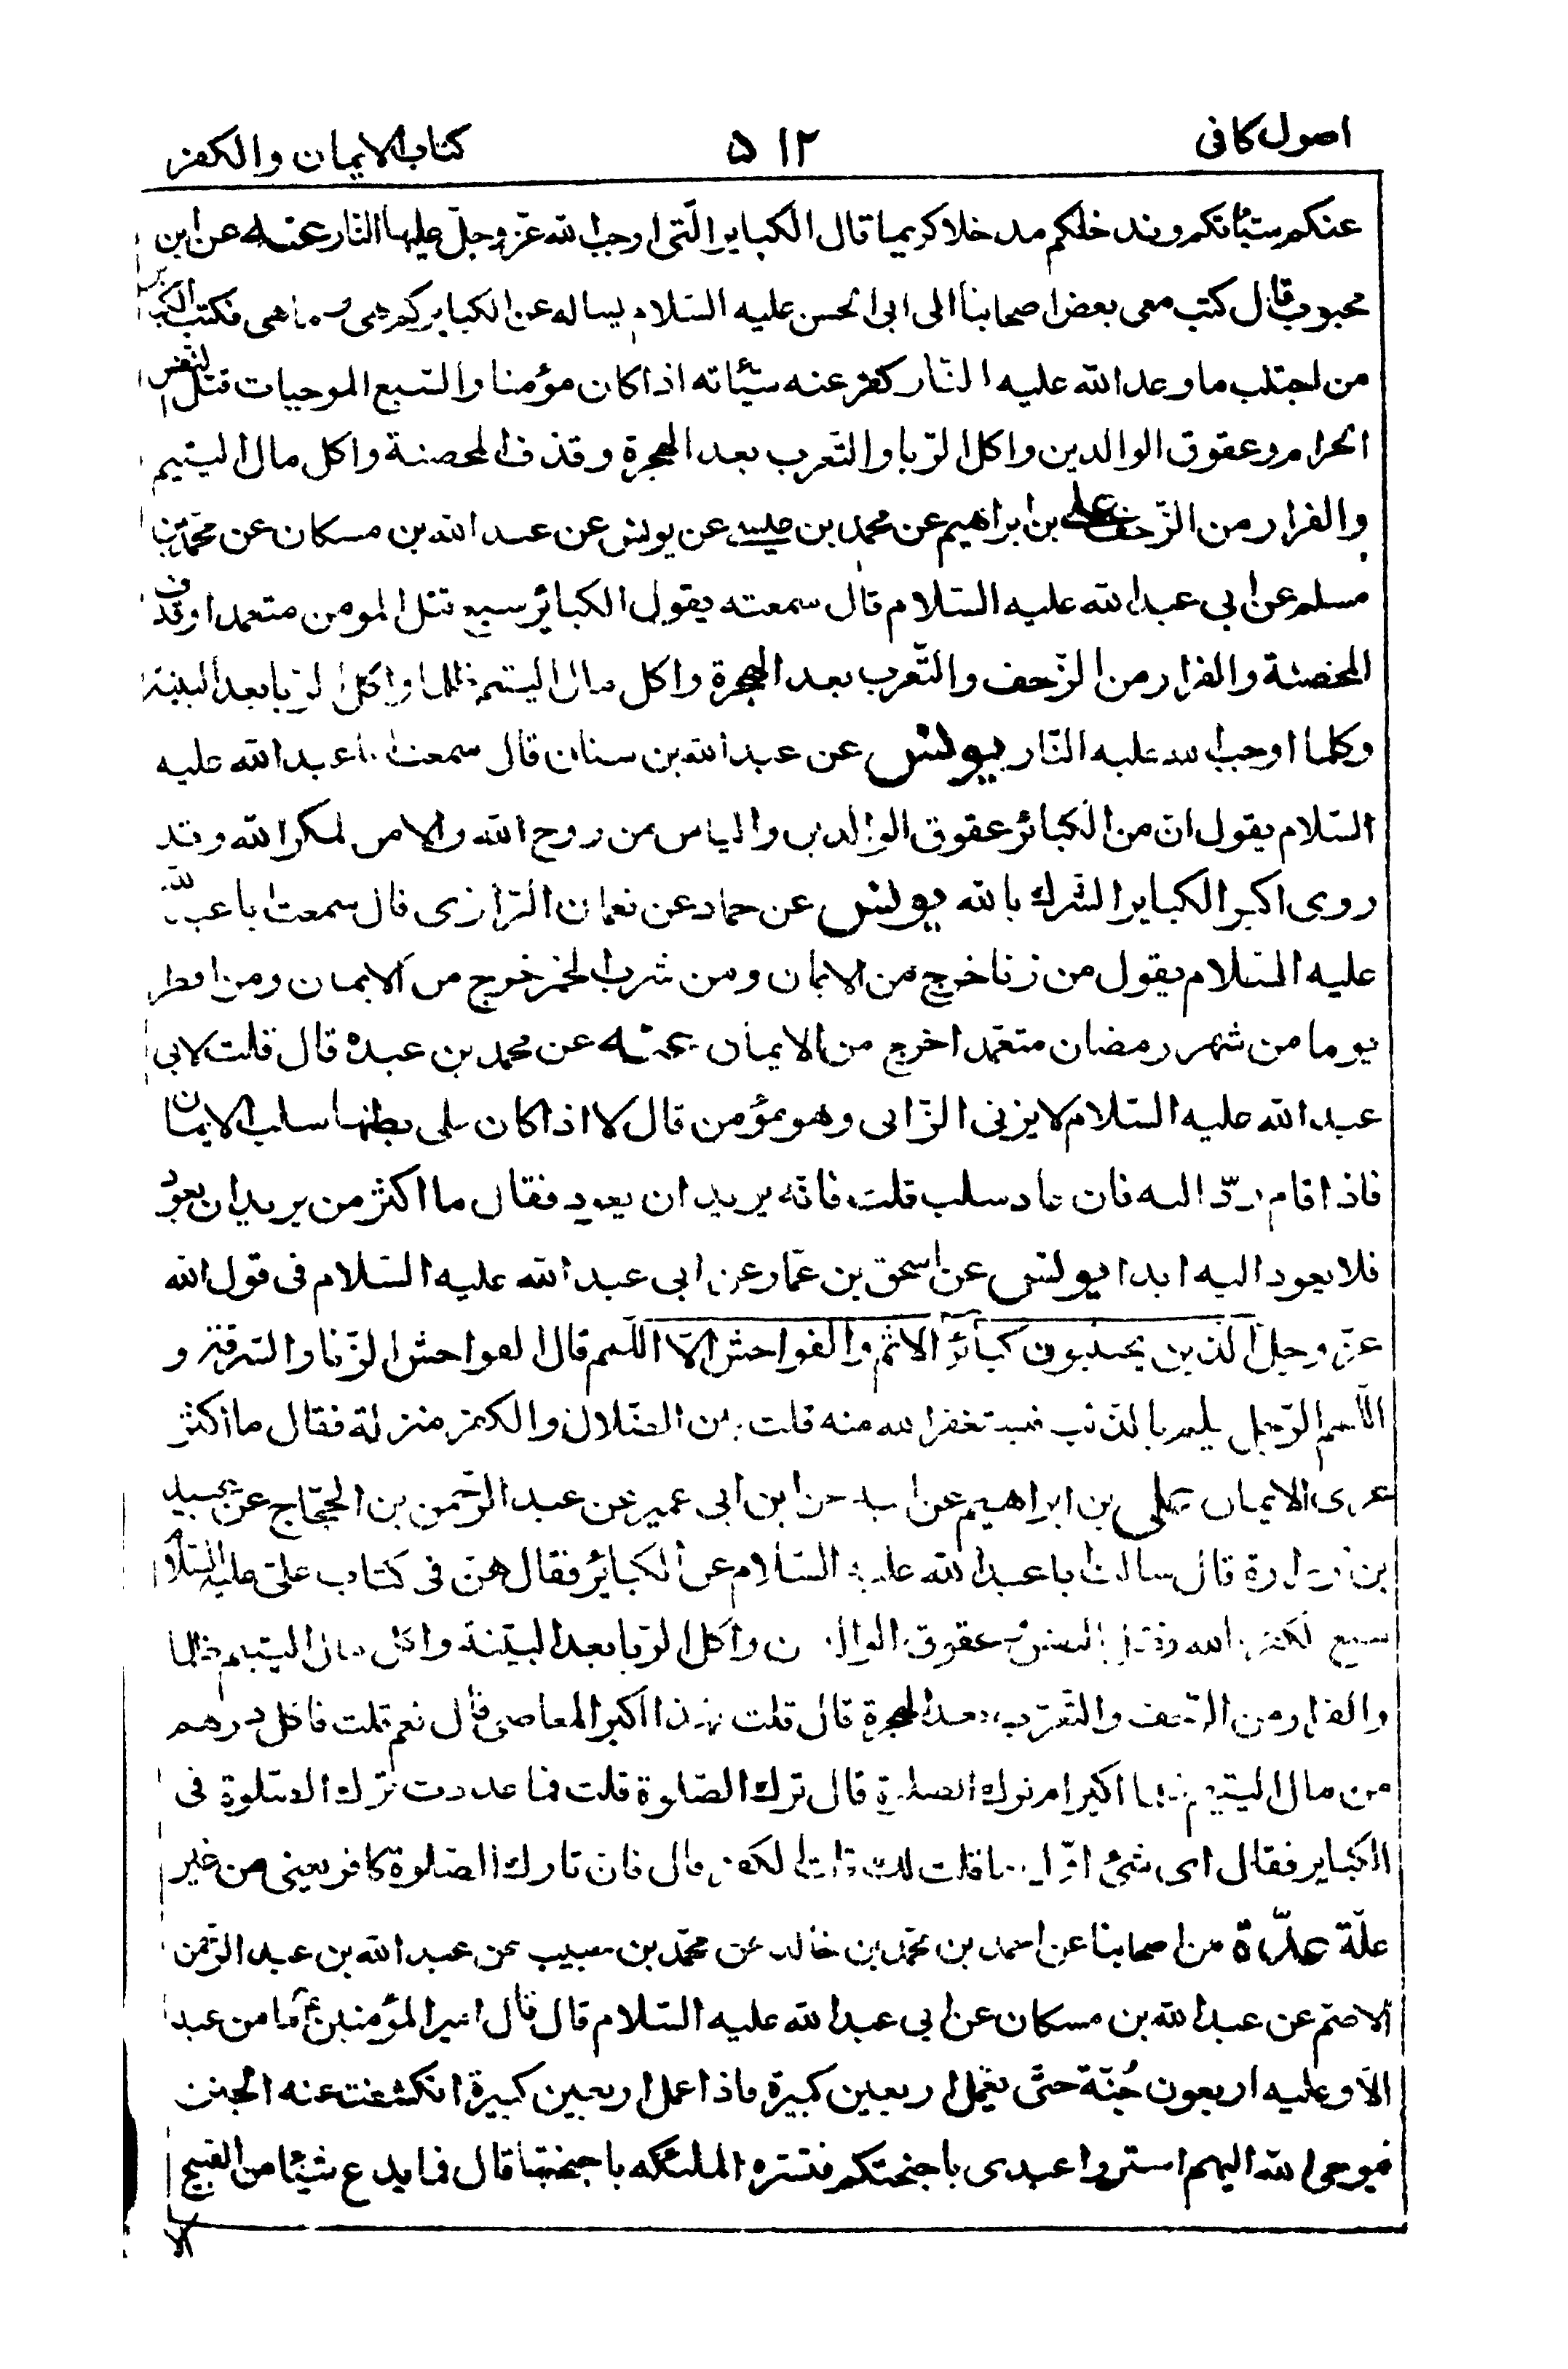 اصول كافى ٥١٢ كتاب الايمان والكفر
عنكم سيّئاتكم وندخلكم مدخلا كريما قال الكباير الّتى اوجب الله عزّ وجلّ عليها النّار عنه عن ابن
محبوب قال كتب معى بعض اصحابنا الى ابى الحسن عليه السّلام يساله عن الكباير كم هى وما هى فكتب الكباير
من اجتنب ما وعد الله عليه النّار كفر عنه سيّئاته اذا كان مؤمنا والسّبع الموجبات قتل النفس
الحرام وعقوق الوالدين واكل الرّبا والتّعرب بعد الهجرة وقذف المحصنة واكل مال اليتيم
والفرار من الزّحف على بن ابراهيم عن محمد بن عيسى عن يونس عن عبد الله بن مسكان عن محمّد بن
مسلم عن ابى عبد الله عليه السّلام قال سمعته يقول الكبائر سبع قتل المومن متعمدا وقذف
المحصنة والفرار من الزّحف والتّعرب بعد الهجرة واكل مال اليتيم ظلما واكل الرّبا بعد البينة
وكلما اوجب الله عليه النّار يونس عن عبد الله بن سنان قال سمعت ابا عبد الله عليه
السّلام يقول انّ من الكبائر عقوق الوالدين والياس من روح الله والامن لمكر الله وقد
روى اكبر الكباير الشّرك بالله يونس عن حماد عن نعمان الرّازى قال سمعت ابا عبد الله
عليه السّلام يقول من زنا خرج من الايمان ومن شرب الخمر خرج من الايمان ومن افطر
يوما من شهر رمضان متعمّدا خرج من الايمان عنه عن محمد بن عبده قال قلت لابى
عبد الله عليه السّلام لا يزنى الزّانى وهو مؤمن قال لا اذا كان على بطنها سلب الايمان
فاذا قام ردّ اليه فان عاد سلب قلت فانّه يريد ان يعود فقال ما اكثر من يريد ان يعود
فلا يعود اليه ابدا يونس عن اسحق بن عمّار عن ابى عبد الله عليه السّلام فى قول الله
عزّ وجلّ الّذين يجتنبون كبائر الاثم والفواحش الّا اللّمم قال الفواحش الزّنا والسّرقة و
اللّمم الرّجل يلمّ بالذّنب فيستغفر الله منه قلت بين الضّلال والكفر منزلة فقال ما اكثر
عرى الايمان على بن ابراهيم عن ابيه عن ابن ابى عمير عن عبد الرّحمن بن الحجّاج عن عبيد
بن زرارة قال سالت ابا عبد الله عليه السّلام عن الكبائر فقال هنّ فى كتاب علىّ عليه السّلام
سبع الكفر بالله وقتل النفس وعقوق الوالدين واكل الرّبا بعد البيّنة واكل مال اليتيم ظلما
والفرار من الزّحف والتّعرّب بعد الهجرة قال قلت فهذا اكبر المعاصى قال نعم قلت فاكل درهم
من مال اليتيم ظلما اكبر ام ترك الصلوة قال ترك الصّلوة قلت فما عددت ترك الصّلوة فى
الكباير فقال اى شئ اوّل ما قلت لك قلت الكفر قال فان تارك الصّلوة كافر يعنى من غير
علّة عدّة من اصحابنا عن احمد بن محمّد بن خالد عن محمّد بن حبيب عن عبد الله بن عبد الرّحمن
الاصمّ عن عبد الله بن مسكان عن ابى عبد الله عليه السّلام قال قال امير المؤمنين ع ما من عبد
الّا وعليه اربعون جُنّة حتّى يعمل اربعين كبيرة فاذا عمل اربعين كبيرة انكشفت عنه الجنن
فيوحى الله اليهم استروا عبدى باجنحتكم فتستره الملئكه باجنحتها قال فما يدع شيئا من القبيح
الا